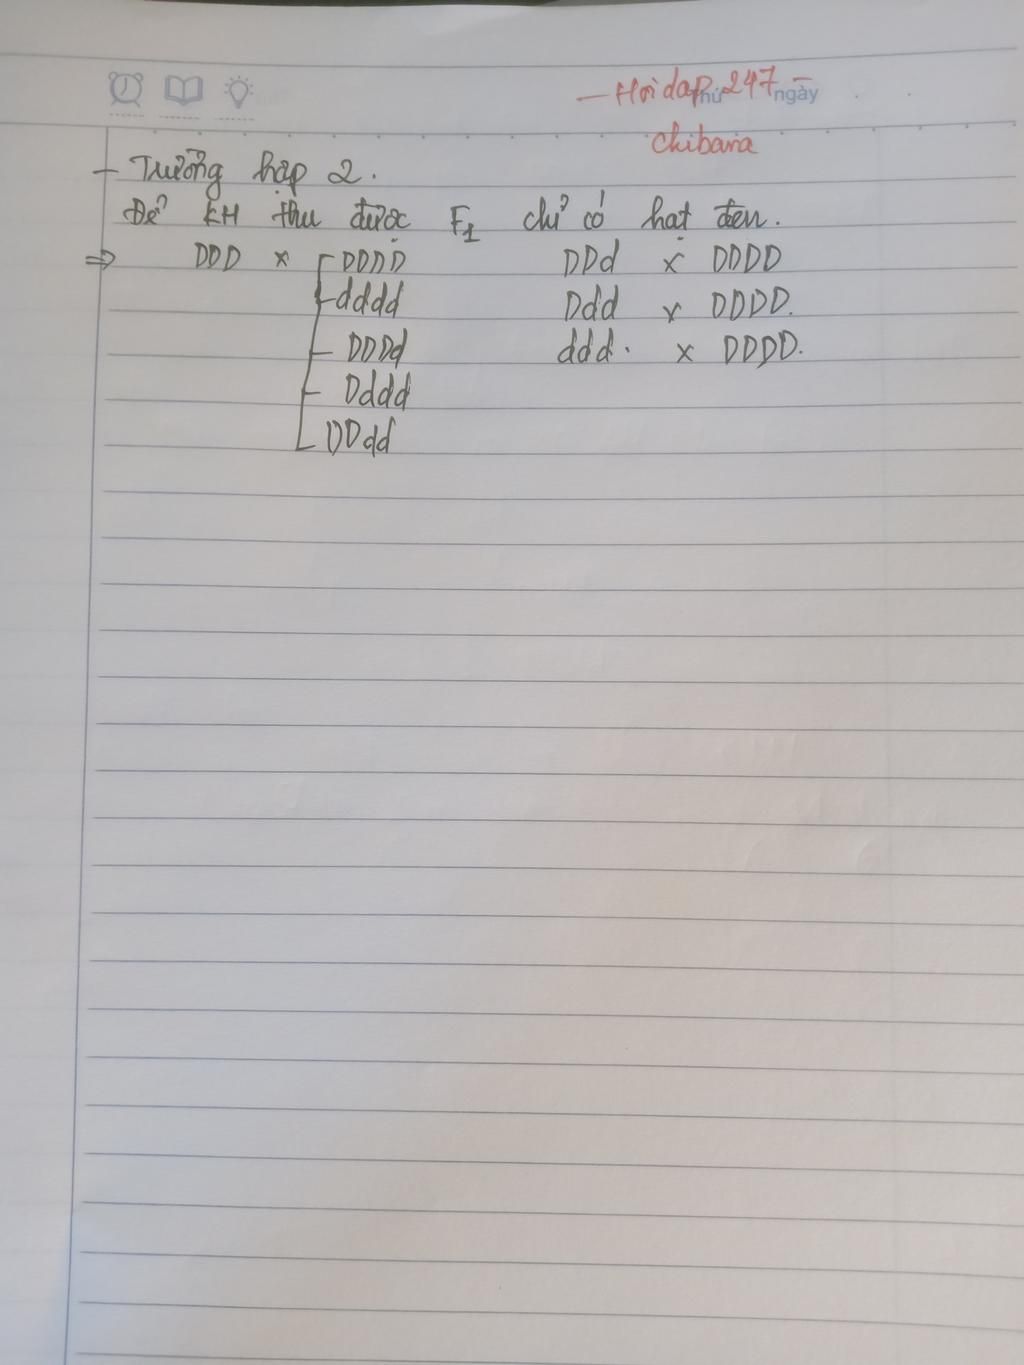 — Hoidap 247 —
ngày
Chibana
- Trường hợp 2.
Để KH thu được F1 chỉ có hạt đen.
⇒ DDD x DDDD DDd x DDDD
dddd Ddd x DDDD.
DDDd ddd. x DDDD.
Dddd
DDdd